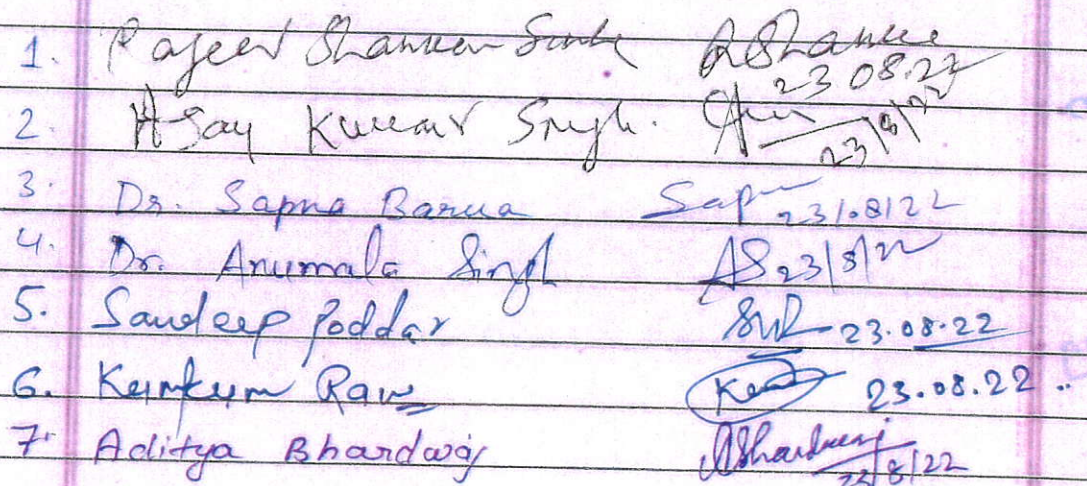 1. Rajeev Shanker Sinha RShanker 23.08.22
2. Ajay Kumar Singh. 23/8/22
3. Dr. Sapna Barua Sap 23/08/22
4. Dr. Anumala Singh AS 23/8/22
5. Sandeep Poddar 23.08.22
6. Kumkum Rani 23.08.22
7. Aditya Bhardwaj ABhardwaj 23/8/22